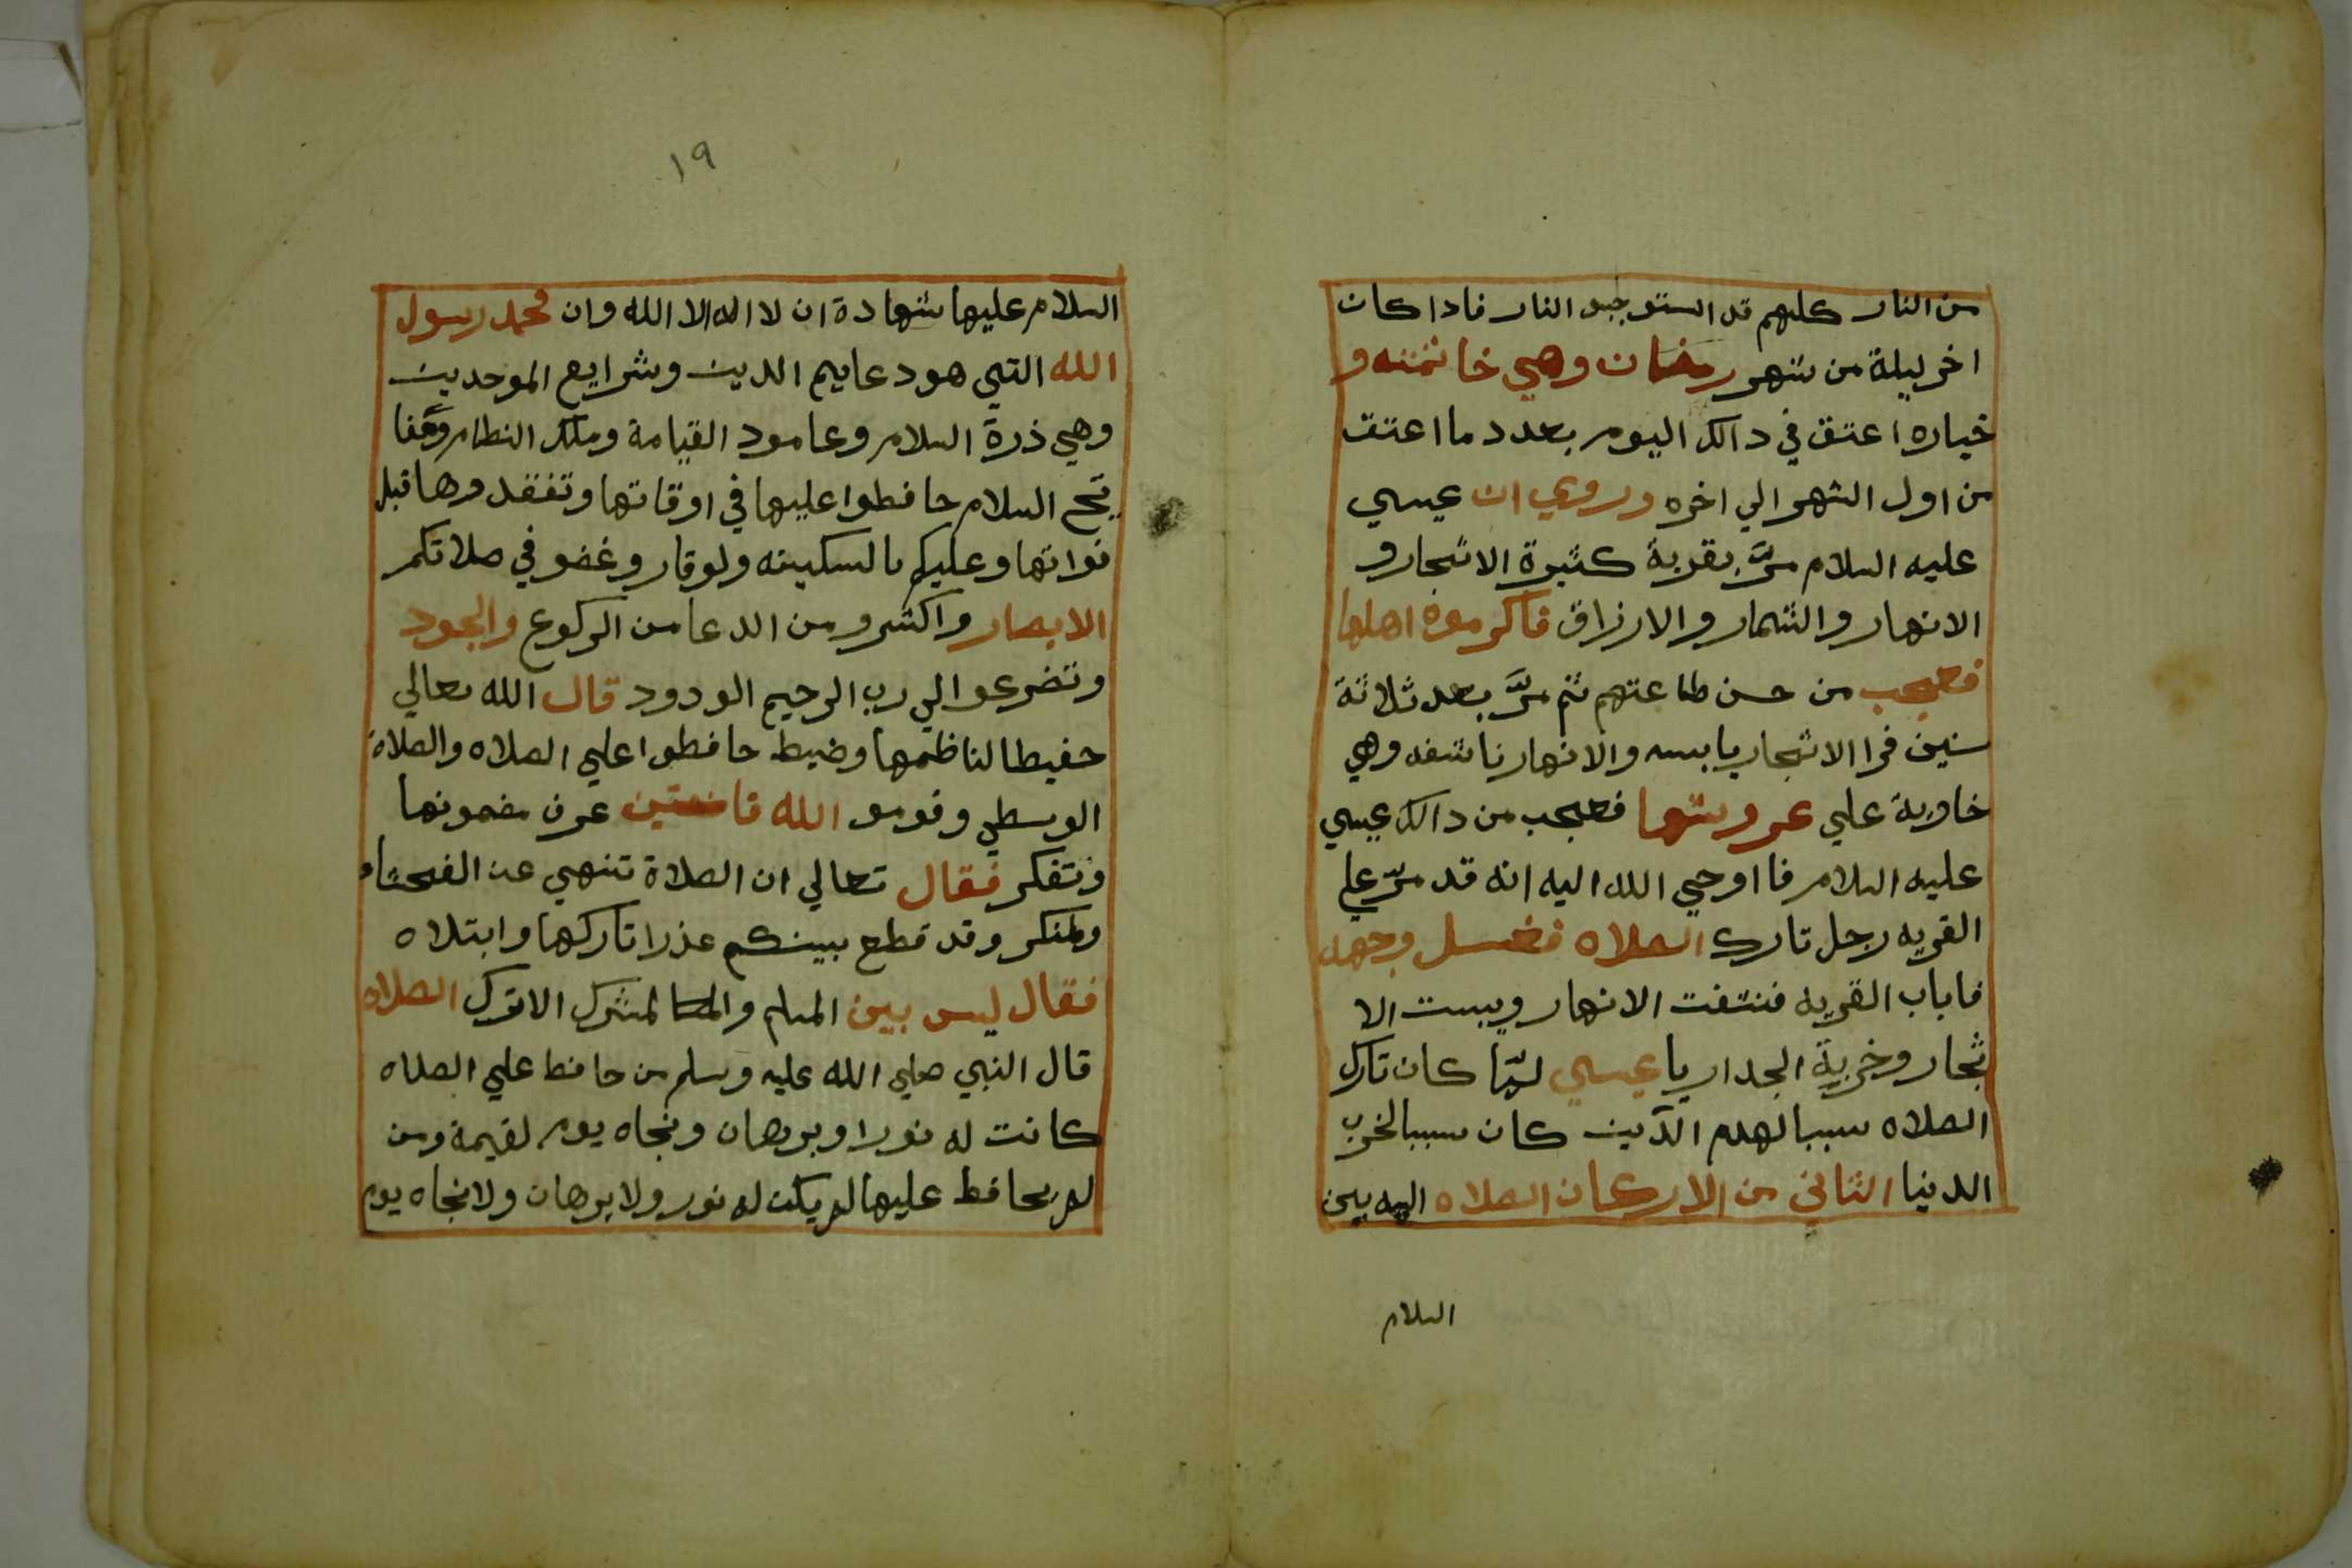 من النار كلهم قد استوجبو النار فادا كان
اخر ليلة من شهر رمضان وهي خاتمته و
خياره اعتق في دالك اليوم بعدد ما اعتق
من اول الشهر الي اخره وروي ان عيسي
عليه السلام مرَّ بقرية كثيرة الاشجار و
الانهار والثمار والارزاق فاكرموه اهلها
فعجب من حسن طاعتهم ثم مرَّ بعد ثلاثة
سنين فرا الاشجار يابسه والانهار ناشفه وهي
خاوية علي عروشها فعجب من دالك عيسي
عليه السلام فا اوحي الله اليه انه قد مرّ علي
القريه رجل تارك الصلاه فغسل وجهه
فاباب القريه فنتفت الانهار ويبست الا
شجار وخربة الجدار يا عيسي لمّا كان تارك
الصلاه سببا لهدم الدّين كان سببا لخرب
الدنيا الثاني من الاركان الصلاه اليه بين
السلام
١٩
السلام عليها شهادة ان لا اله الا الله وان محمد رسول
الله التي هو دعايم الدين وشرايع الموحدين
وهي ذرة السلام وعامود القيامة وملك النظام
السلام حافظوا عليها في اوقاتها وتفقدوها قبل
فواتها وعليكم بالسكينه ولوقار وغضو في صلاتكم
الابصار واكثرو من الدعا من الركوع والسجود
وتضرعوا الي رب الرحيم الودود قال الله تعالي
حفيظا لناظمها وضيط حافظوا علي الصلاه والصلاة
الوسطي وقومو الله قانعتين عرف مضمونها
وتفكر فقال تعالي ان الصلاة تنهي عن الفحشاء
ولمنكر وقد قطع بينكم عذرا تاركها وابتلاه
فقال ليس بين المسلم والمشرك الا ترك الصلاه
قال النبي صلي الله عليه وسلم من حافظ علي الصلاه
كانت له نورا وبرهان ونجاه يوم لقيمة ومن
لم يحافظ عليها لم يكن له نور ولا برهان ولا نجاه يوم